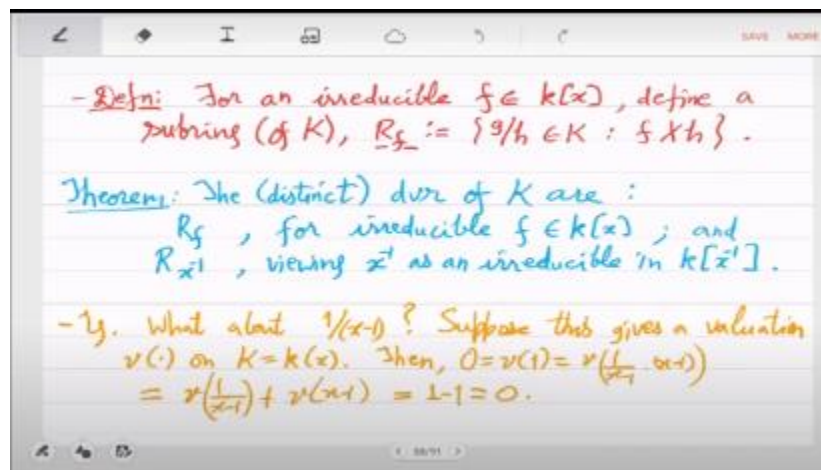 SAVE MORE
- Defn: For an irreducible f ∈ k[x], define a
subring (of K), R_f := {g/h ∈ K : f ∤ h}.
Theorem: The (distinct) dvr of K are :
R_f , for irreducible f ∈ k[x] ; and
R_{x^{-1}} , viewing x^{-1} as an irreducible in k[x^{-1}].
- Eg. What about 1/(x-1)? Suppose this gives a valuation
v(·) on K = k(x). Then, 0 = v(1) = v(1/(x-1) · (x-1))
= v(1/(x-1)) + v(x-1) = 1-1 = 0.